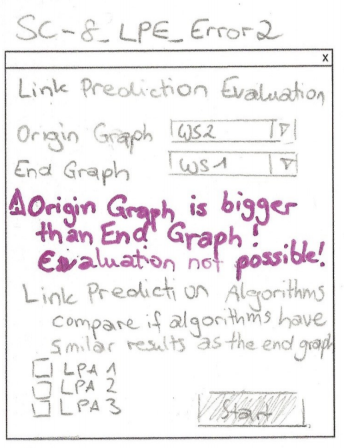 SC-8_LPE_Error2
x
Link Prediction Evaluation
Origin Graph WS2
End Graph WS1
Origin Graph is bigger
than End Graph!
Evaluation not possible!
Link Prediction Algorithms
compare if algorithms have
similar results as the end graph
LPA 1
LPA 2
LPA 3
Start